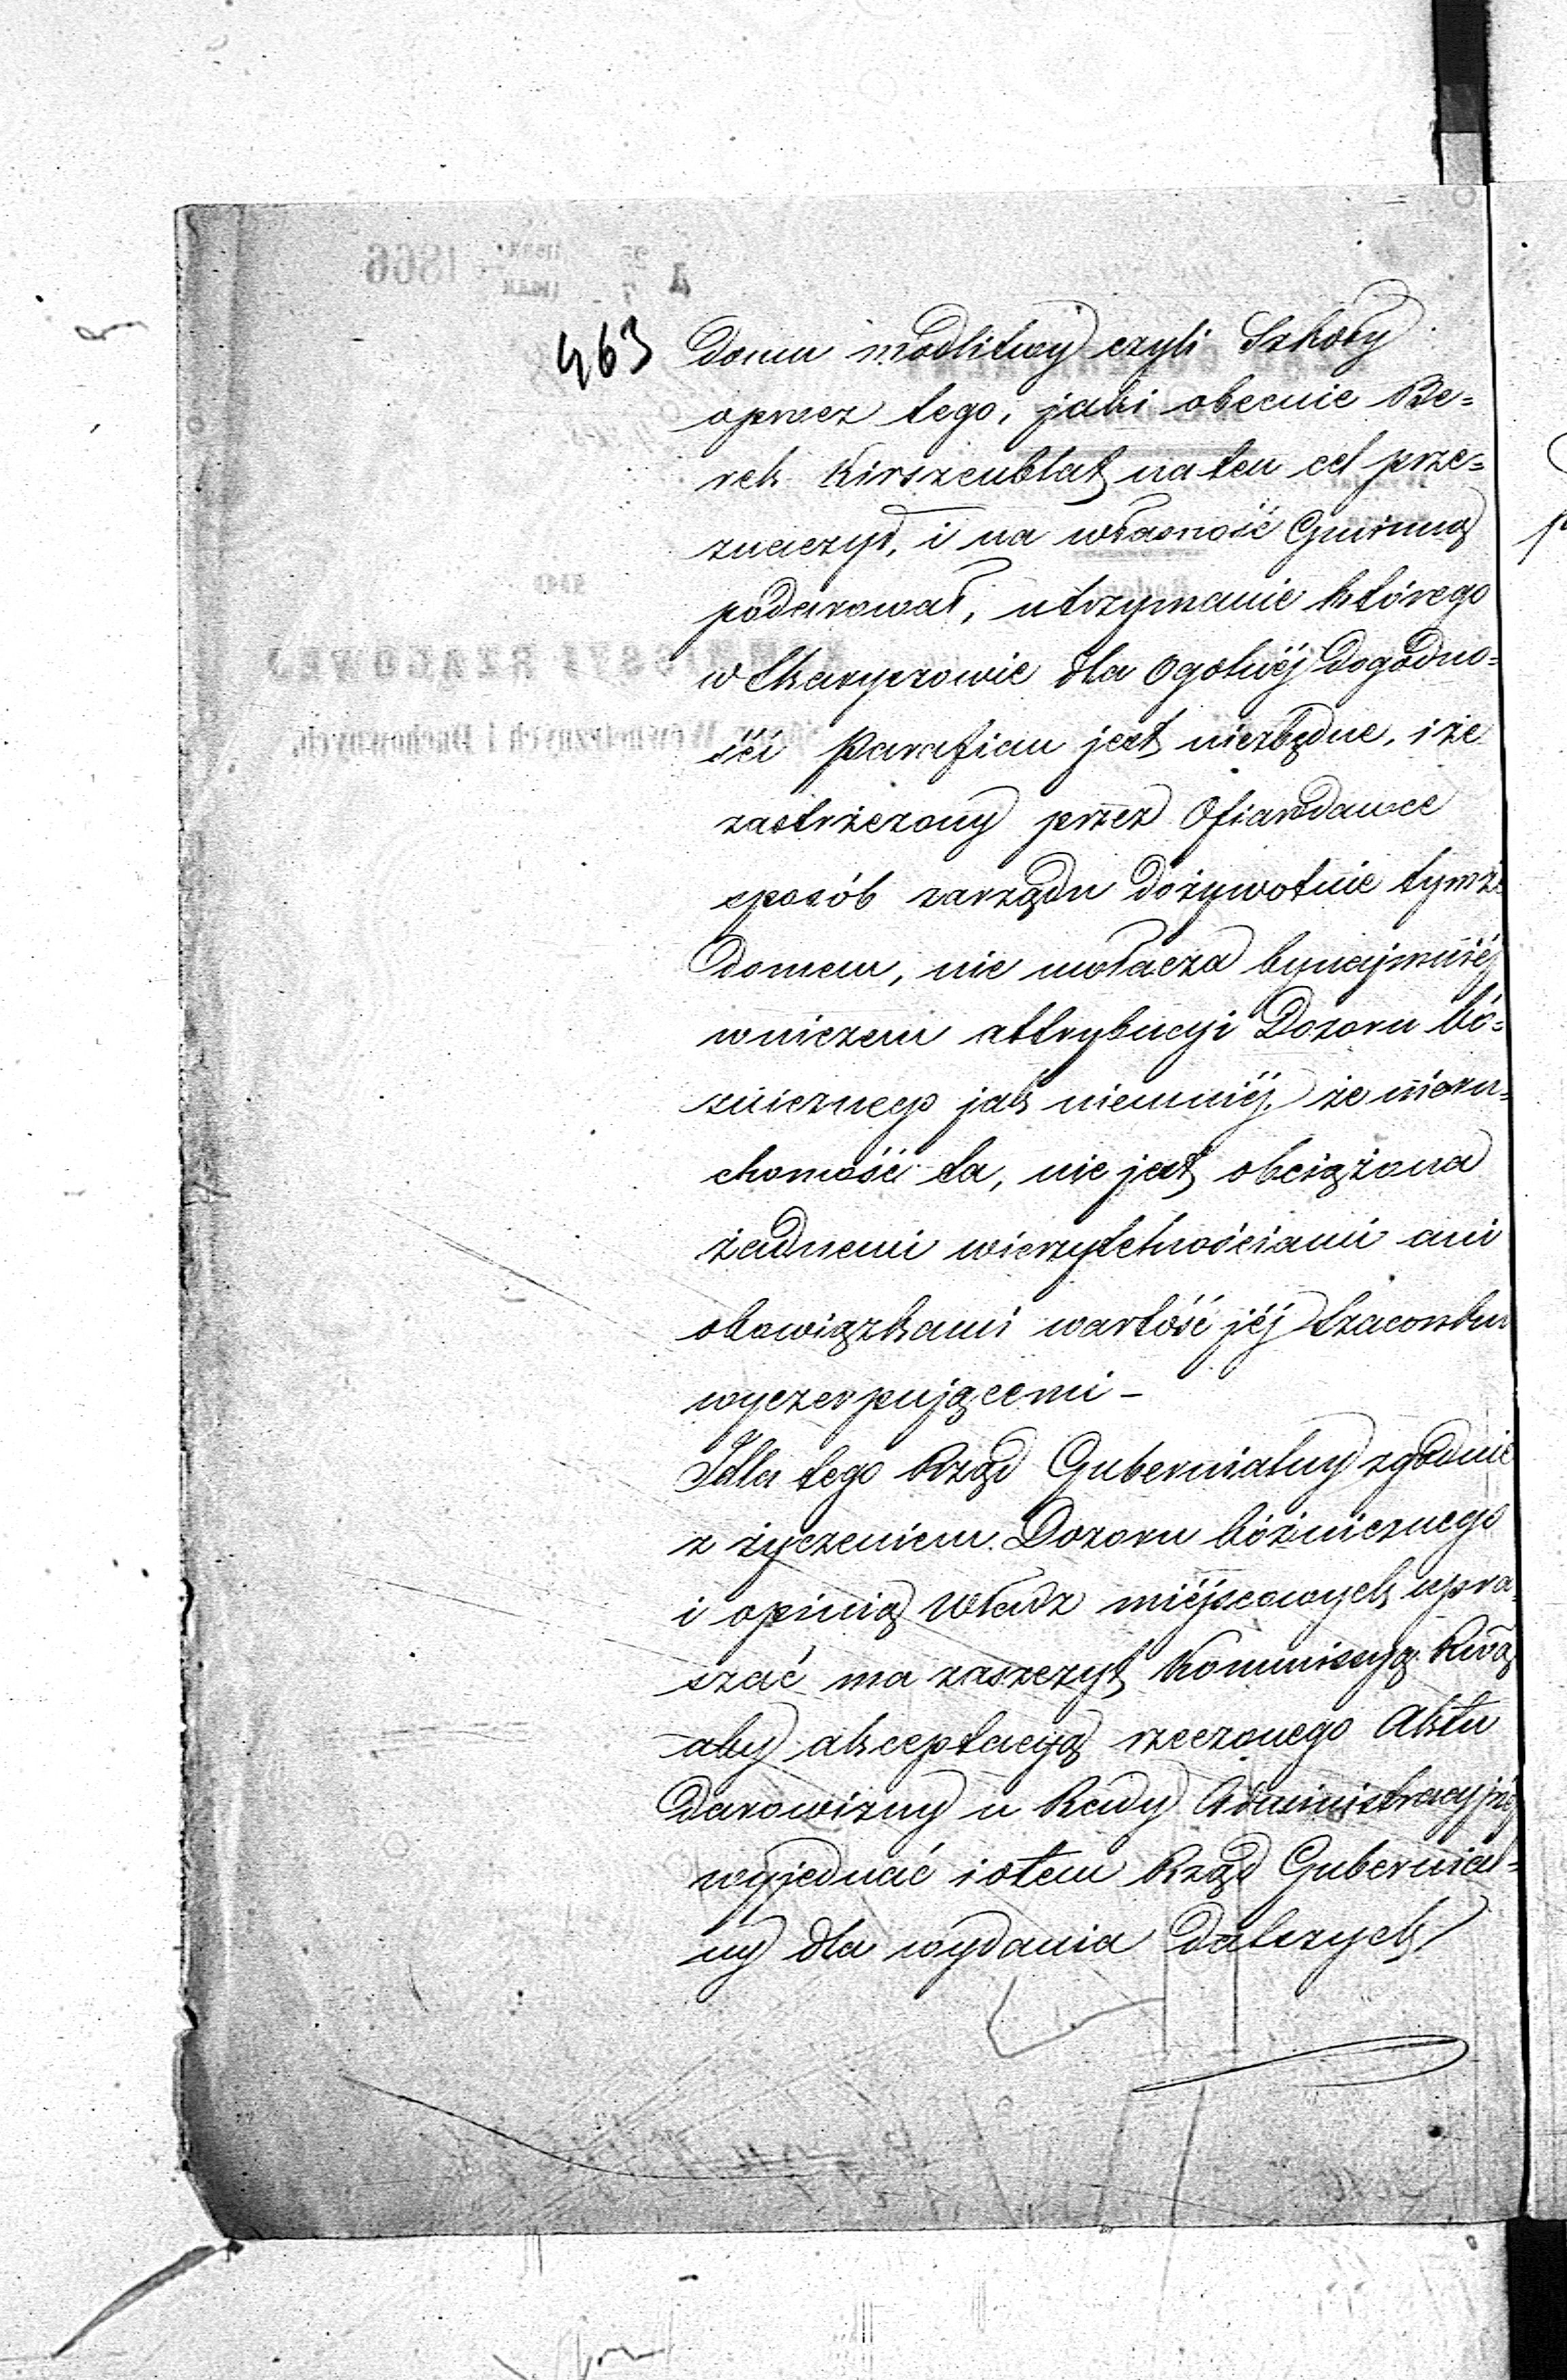 463
domu modlitwy czyli Szkoły
oprócz tego, jaki obecnie Be=
rek Kirszenblat na ten cel prze=
znaczył, i na własność Gminną
podarował, utrzymanie którego
w Skaryszowie dla ogolnéj dogodno=
ści Parafian jest niezbędne, i że
zastrzeżony przez Ofiarodawce
sposób zarządu dożywotnie tymże
domem, nie uwłacza bynajmniéj
wniczem attrybucyi Dozoru bó=
źnicznego jak niemniéj, że nieru=
chomość ta, nie jest obciążona
żadnemi wierzytelnościami ani
obowiązkami wartość jéj szacunku
wyczerpującemi –
I dla tego Rząd Gubernialny zgodnie
z życzeniem Dozoru bóźnicznego
i opinią Władz miéjscowych upra=
szać ma zaszczyt Kommissyą Rwą
aby akceptacyą rzeczonego Aktu
darowizny u Rady Administracyjnéj
wyjednać i otem Rząd Gubernial=
ny dla wydania dalszych